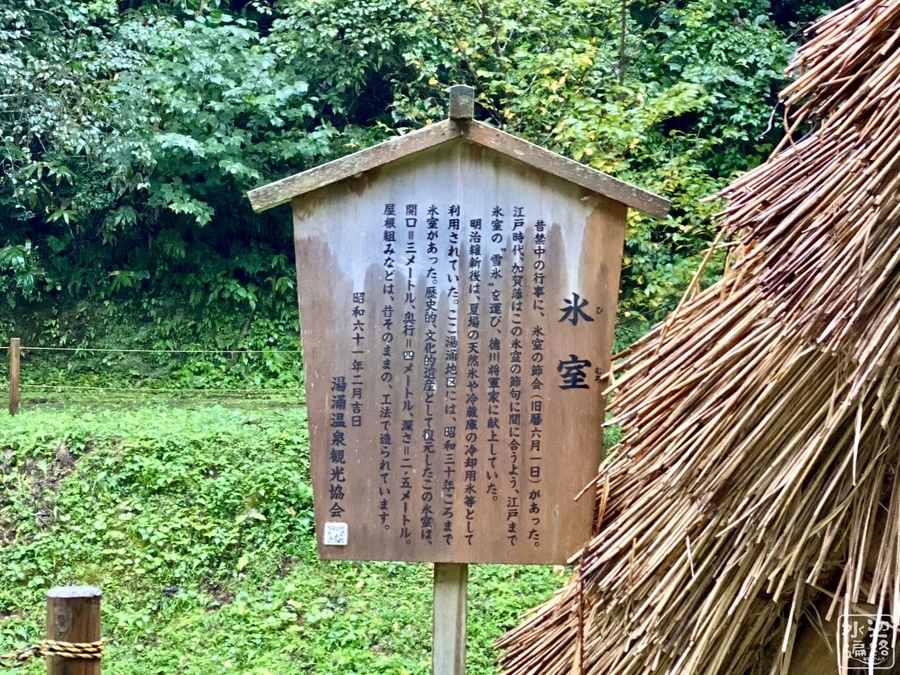 氷室
ひ むろ
昔禁中の行事に、氷室の節会(旧暦六月一日)があった。
江戸時代、加賀藩はこの氷室の節句に間に合うよう、江戸まで
氷室の〝雪氷〟を運び、徳川将軍家に献上していた。
明治維新後は、夏場の天然氷や冷蔵庫の冷却用氷等として
利用されていた。ここ湯涌地区には、昭和三十年ころまで
氷室があった。歴史的、文化的遺産として復元したこの氷室は、
開口=三メートル、奥行=四メートル、深さ=二・五メートル。
屋根組みなどは、昔そのままの、工法で造られています。
昭和六十一年二月吉日
湯涌温泉観光協会
水辺遍路